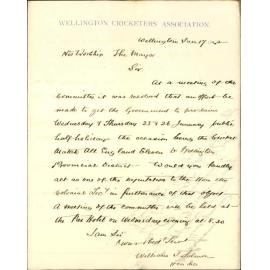 WELLINGTON CRICKETERS' ASSOCIATION.
Wellington Jan 17
His Worship The Mayor
Sir
At a meeting of the
Committee it was resolved that an effort be
made to get the Government to proclaim
Wednesday & Thursday 25 & 26 January public
half-holidays the occasion being the Cricket
Match All England Eleven v Wellington
Provincial District. Would you kindly
act as one of the deputation to the Hon the
Colonial Secy in furtherance of that object
A meeting of the committee will be held at
the Pier Hotel on Wednesday evening at 8.30
I am Sir
Your obedt Servt
William
Hon Sec